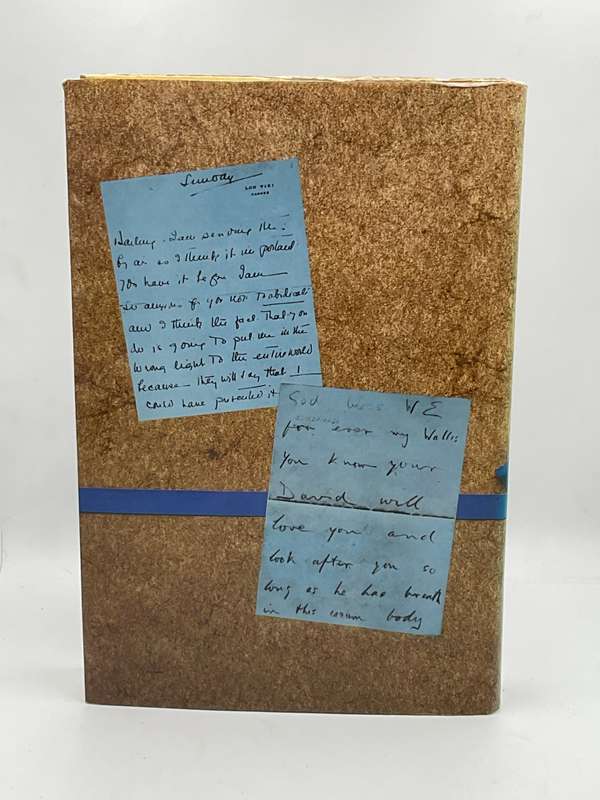 Sunday
LOU VIEI
CANNES
Darling - I am sending this
by air as I think it important
you have it before. I am
so anxious for you not to abdicate
and I think the fact that you
do is going to put me in the
wrong light to the entire world
because they will say that I
could have prevented it
God bless WE
for ever my Wallis
You know your
David will
love you and
look after you so
long as he has breath
in this eanum body